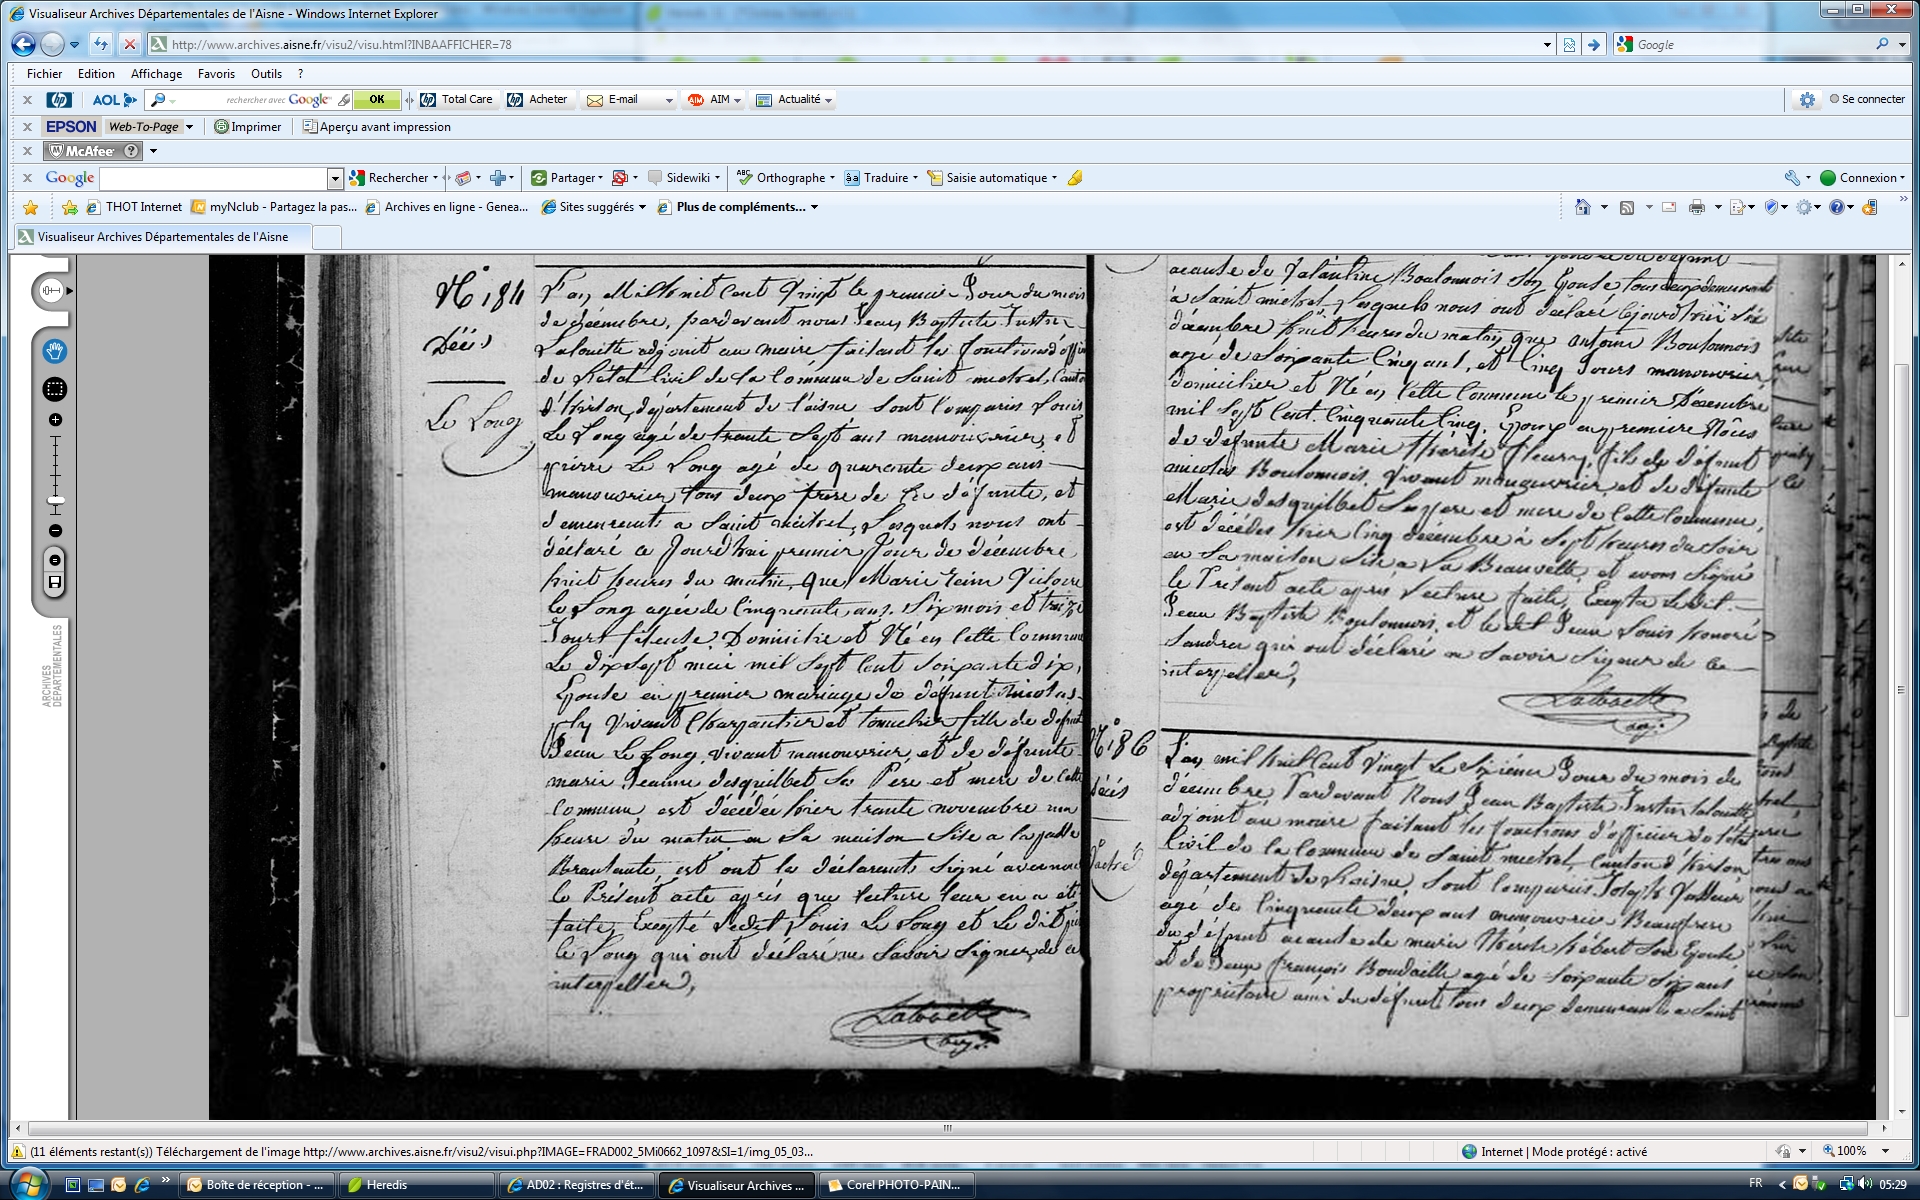 Visualiseur Archives Départementales de l'Aisne - Windows Internet Explorer
http://www.archives.aisne.fr/visu2/visu.html?INBAAFFICHER=78
Google
Fichier Edition Affichage Favoris Outils ?
AOL rechercher avec Google OK Total Care Acheter E-mail AIM Actualité Se connecter
EPSON Web-To-Page Imprimer Aperçu avant impression
McAfee
Google Rechercher Partager Sidewiki Orthographe Traduire Saisie automatique Connexion
THOT Internet myNclub - Partagez la pas... Archives en ligne - Genea... Sites suggérés Plus de compléments...
Visualiseur Archives Départementales de l'Aisne
ARCHIVES DEPARTEMENTALES
N° 184
Décès
Le Long
L'an Mil huit Cent Vingt le premier Jour du mois
de décembre, pardevant nous Jean Baptiste Justin
Lalouette adjoint au maire faisant les fonctions d'offi
de l'état Civil de la Commune de Saint michel, Canto
d'hirson, département de l'aisne sont Comparus Louis
Le Long agé de trante Sept ans manouvrier, et
pierre Le Long agé de quarante deux ans
manouvrier tous deux frere de la défunte, et
demeurants a Saint michel, Lesquels nous ont
déclaré ce Jourdhui premier Jour de décembre
huit heures du matin, que Marie Victoire
le Long agée de Cinquante ans Six mois et treize
Jours fileuse Domiciliée et Née en Cette Commune
Le dix Sept mai mil Sept Cent Soixante dix,
Epouse en premier mariage de défunt nicolas
vivant Charpentier et tonnelier fille de défunt
Jean Le Long, vivant manouvrier, et de défunte
marie Jeanne desquilbet Ses Pere et mere de Cette
Commune est décédée hier trante novembre une
heure du matin en Sa maison Sise a la
et ont les déclarants signé avec nous
le Présent acte après que lecture leur en a été
faite, Excepté Ledit Louis Le Long et Le dit
le Long qui ont déclaré ne Savoir Signer, de ce
interpeller,
Lalouette
adj.
acause de Boulonnois Son Epouse, tous deux demeurant
à Saint michel, Lesquels nous ont déclaré Cejourd'hui Six
décembre huit heures du matin que antoine Boulonnois
agé de Soixante Cinq ans, et Cinq Jours manouvrier,
domicilier et Né en Cette Commune le premier Décembre
mil Sept Cent Cinquante Cinq, Epoux en premiere Nôces
de défunte Marie thérèse fleury, fils de défunt
nicolas Boulonnois, Vivant manouvrier, et de défunte
Marie desquilbet Ses pere et mere de Cette Commune,
est décédés hier Cinq décembre à Sept heures du Soir
en Sa maison Sise a La Beauvette, et avons Signé
le Présent acte après Lecture faite, Excepté Ledit
Jean Baptiste Boulonnois, et le dit Jean Louis honoré
qui ont déclaré ne Savoir Signer de ce
interpeller,
Lalouette
adj.
N° 186
Décès
L'an mil huit Cent Vingt Le Sixième Jour du mois de
décembre Pardevant Nous Jean Baptiste Justin Lalouette
adjoint au maire faisant les fonctions d'officier de l'état
Civil de la Commune de Saint michel, Canton d'hirson,
département de l'aisne, Sont Comparus Joseph
agé de Cinquante deux ans manouvrier Beaufrere
du défunt acause de marie thérèse hébert Son Epouse
et de Jean françois Boudaille agé de Soixante Six ans
proprietaire ami du défunt tous deux demeurants a Saint
(11 éléments restant(s)) Téléchargement de l'image http://www.archives.aisne.fr/visu2/visui.php?IMAGE=FRAD002_5Mi0662_1097&SI=1/img_05_03...
Internet | Mode protégé : activé
100%
Boîte de réception - ... Heredis AD02 : Registres d'ét... Visualiseur Archives ... Corel PHOTO-PAIN...
FR 05:29